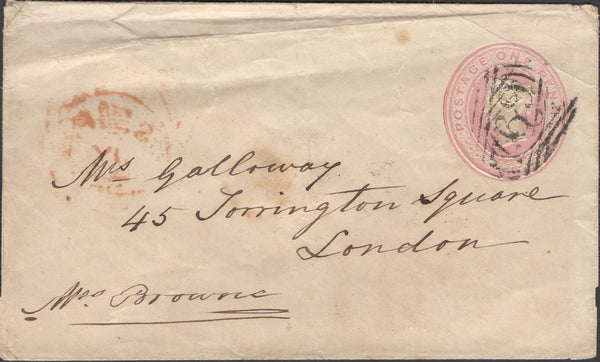 POSTAGE ONE PENNY
Mrs Galloway
45 Torrington Square
London
Mrs Browne